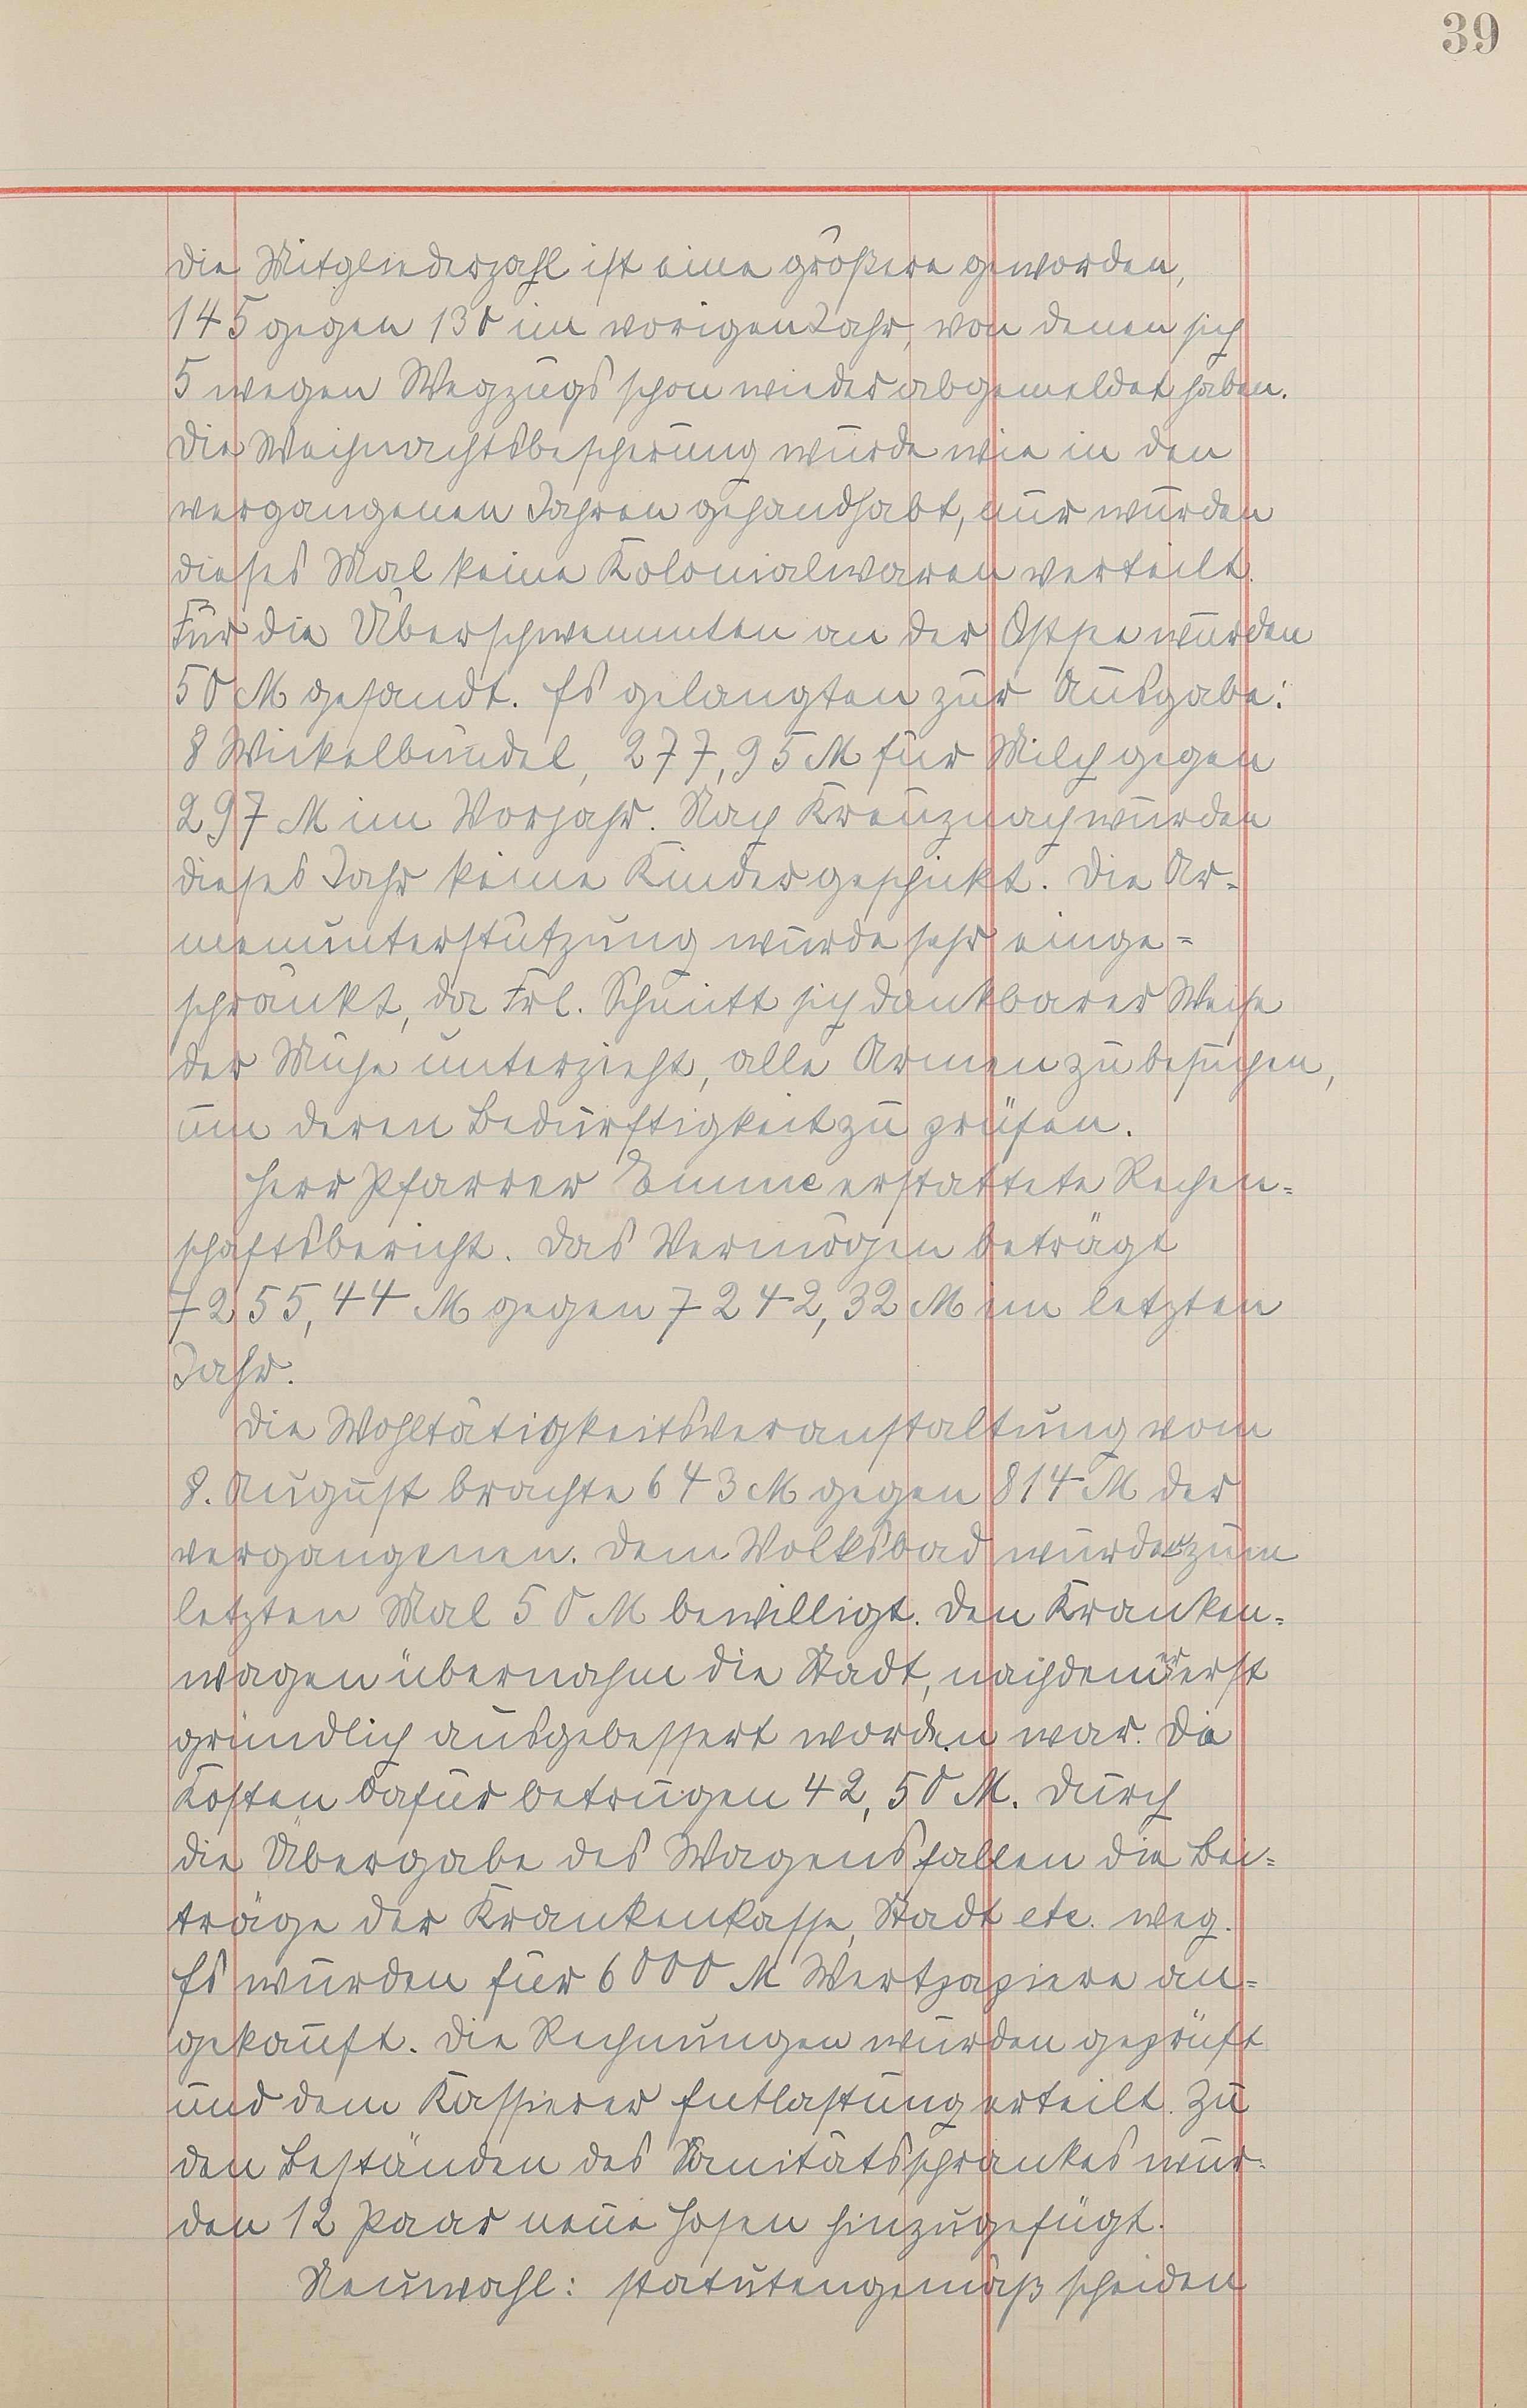 39
Die Mitgliederzahl ist eine größere geworden,
145 gegen 130 im vorigen Jahr, von denen sich
5 wegen Wegzugs schon wieder abgemeldet haben.
Die Weihnachtsbescherung wurde wie in den
vergangenen Jahren gehandhabt, nur wurden
dieses Mal keine Kolonialwaren verteilt.
Für die Überschwemmten an der Ostsee wurden
50 M gesandt. Es gelangten zur Ausgabe:
8 Wickelbündel, 277,95 M für Milch gegen
297 M im Vorjahr. Nach Kreuznach wurden
dieses Jahr keine Kinder geschickt. Die Ar-
menunterstützung wurde sehr einge-
schränkt, da Frl. Schmitt sich dankbarer Weise
der Mühe unterzieht, alle Armen zu besuchen,
um deren Bedürftigkeit zu prüfen.
Herr Pfarrer Emme erstattete Rechen-
schaftsbericht. Das Vermögen beträgt
7255,44 M gegen 7242,32 M im letzten
Jahr.
Die Wohltätigkeitsveranstaltung vom
8. August brachte 643 M gegen 814 M der
vergangenen. Dem Volksbad wurden zum
letzten Mal 50 M bewilligt. Den Kranken-
wagen übernahm die Stadt, nachdem er erst
gründlich ausgebessert worden war. Die
Kosten dafür betrugen 42,50 M. Durch
die Übergabe des Wagens fallen die Bei-
träge der Krankenkasse, Stadt etc. weg.
Es wurden für 6000 M Wertpapiere an-
gekauft. Die Rechnungen wurden geprüft
und dem Kassierer Entlastung erteilt. Zu
den Beständen des Sanitätsschrankes wur-
den 12 Paar neue Hosen hinzugefügt.
Neuwahl: statutengemäß scheiden